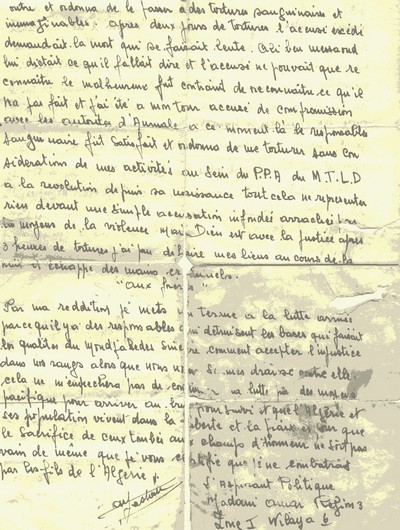 outre et ordonna de le passer à des tortures sanguinaires et
inimaginables. après deux jours de tortures l'accusé excédé
demandait la mort qui se faisait lente. Ali ben messaoud
lui dictait ce qu'il fallait dire et l'accusé ne pouvait que re
connaître le malheureux fut contraint de reconnaître ce qu'il
n'a pas fait et j'ai été à mon tour accusé de compromission
avec les autorités d'Aumale à ce moment là le responsable
sanguinaire fut satisfait et ordonna de me torturer sans con
sidération de mes activités au sein du P.P.A du M.T.L.D
à la révolution depuis sa naissance tout cela ne représenta
rien devant une simple accusation infondée arrachée
moyens de la violence mais Dieu est avec la justice après
3 heures de tortures j'ai pu défaire mes liens au cours de la
nuit et échappé des mains criminelles.
"aux frères"
Par ma reddition je mets un terme à la lutte armée
parce qu'il y a des responsables qui détruisent les bases qui faisait
les qualités du moudjahedes comment accepter l'injustice
dans nos rangs alors que nous Si nous
cela ne m'empêchera pas de lutte par des moyens
pacifique pour arriver au but poursuivi et que l'Algérie et
ses population vivent dans la liberté et la paix et que
le sacrifice de ceux tombés au champs d'honneur ne soit pas
vain de même que je vous que je ne combatrais
pas les fils de l'Algérie.
l'Aspirant Politique
Madani Région 3
Zone I Wilaya 6